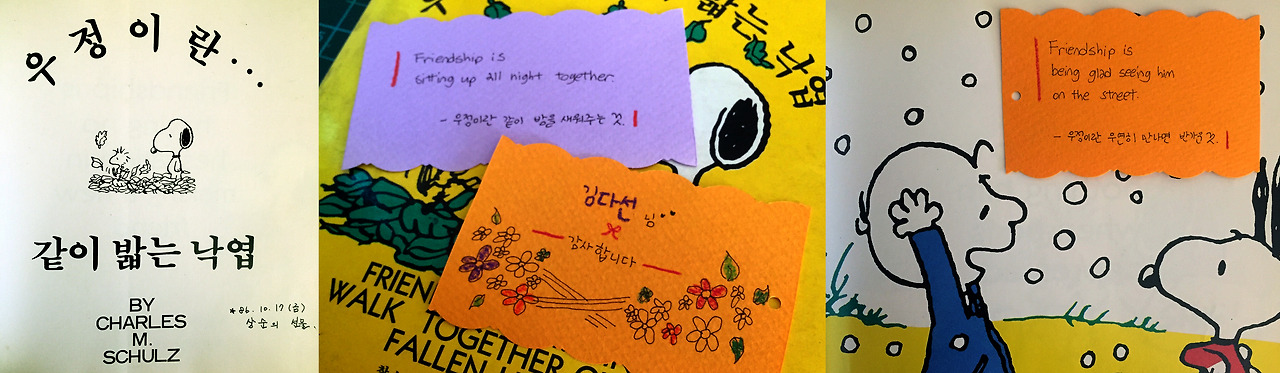 우정이란...
같이 밟는 낙엽
BY
CHARLES
M.
SCHULZ
*86.10.17(금)
상순의 선물.
밟는 낙엽
Friendship is
sitting up all night together.
- 우정이란 같이 밤을 새워주는 것.
김다선 님..
감사합니다
FRIEN
WALK TOGETHER O
FALLEN
Friendship is
being glad seeing him
on the street.
- 우정이란 우연히 만나면 반가울 것.